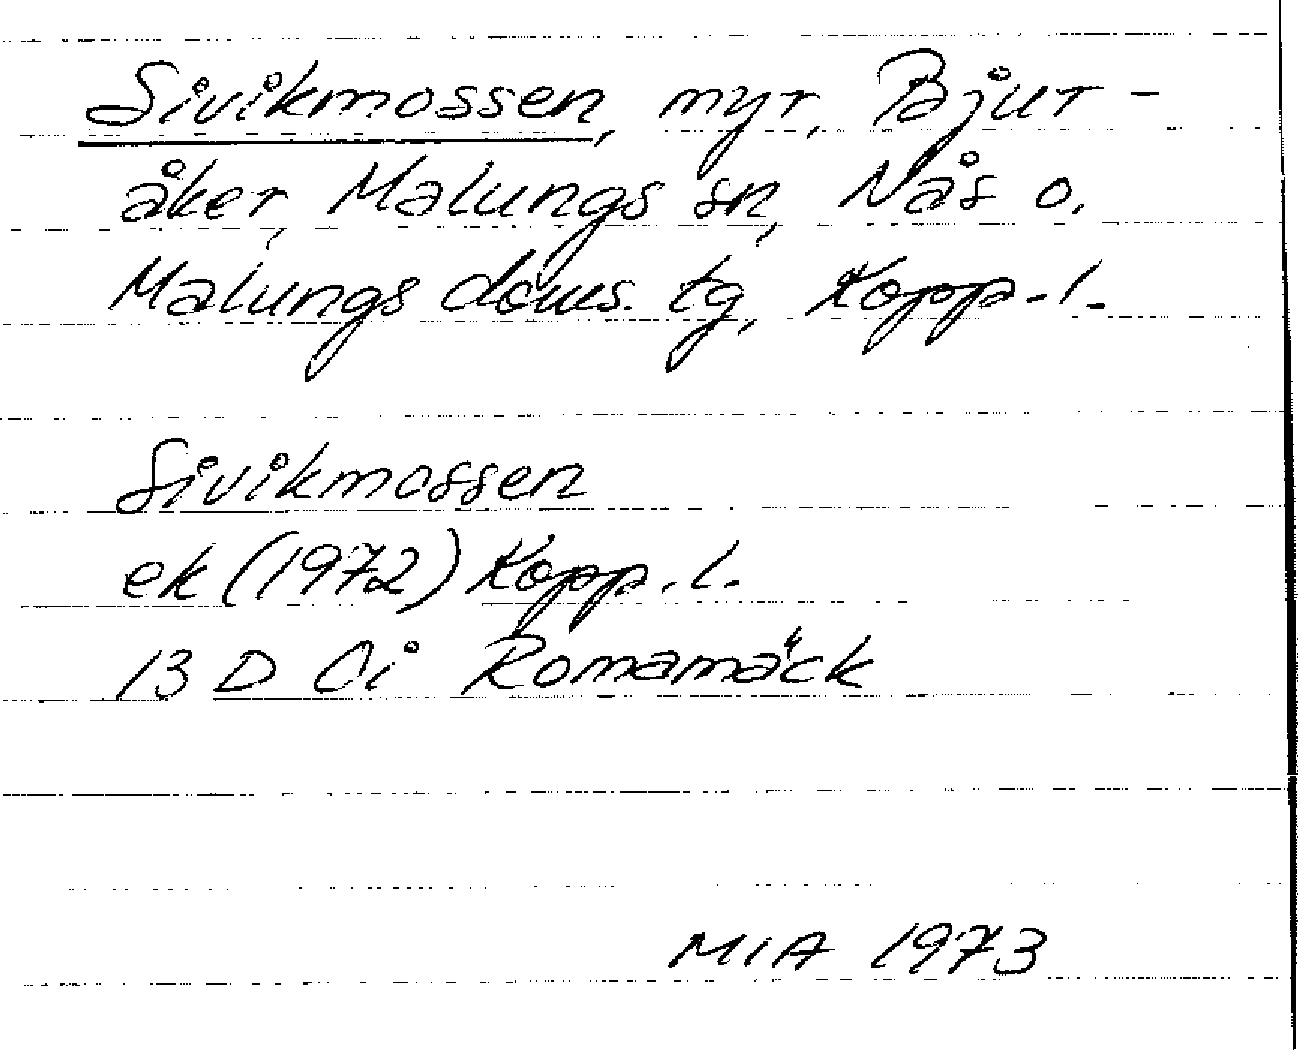 Sivikmossen, myr, Bjur-
åker, Malungs sn, Nås o.
Malungs doms. tg, Kopp. l.
Sivikmossen
ek (1972) Kopp. l.
13 D Ci Romamäck
MIA 1973